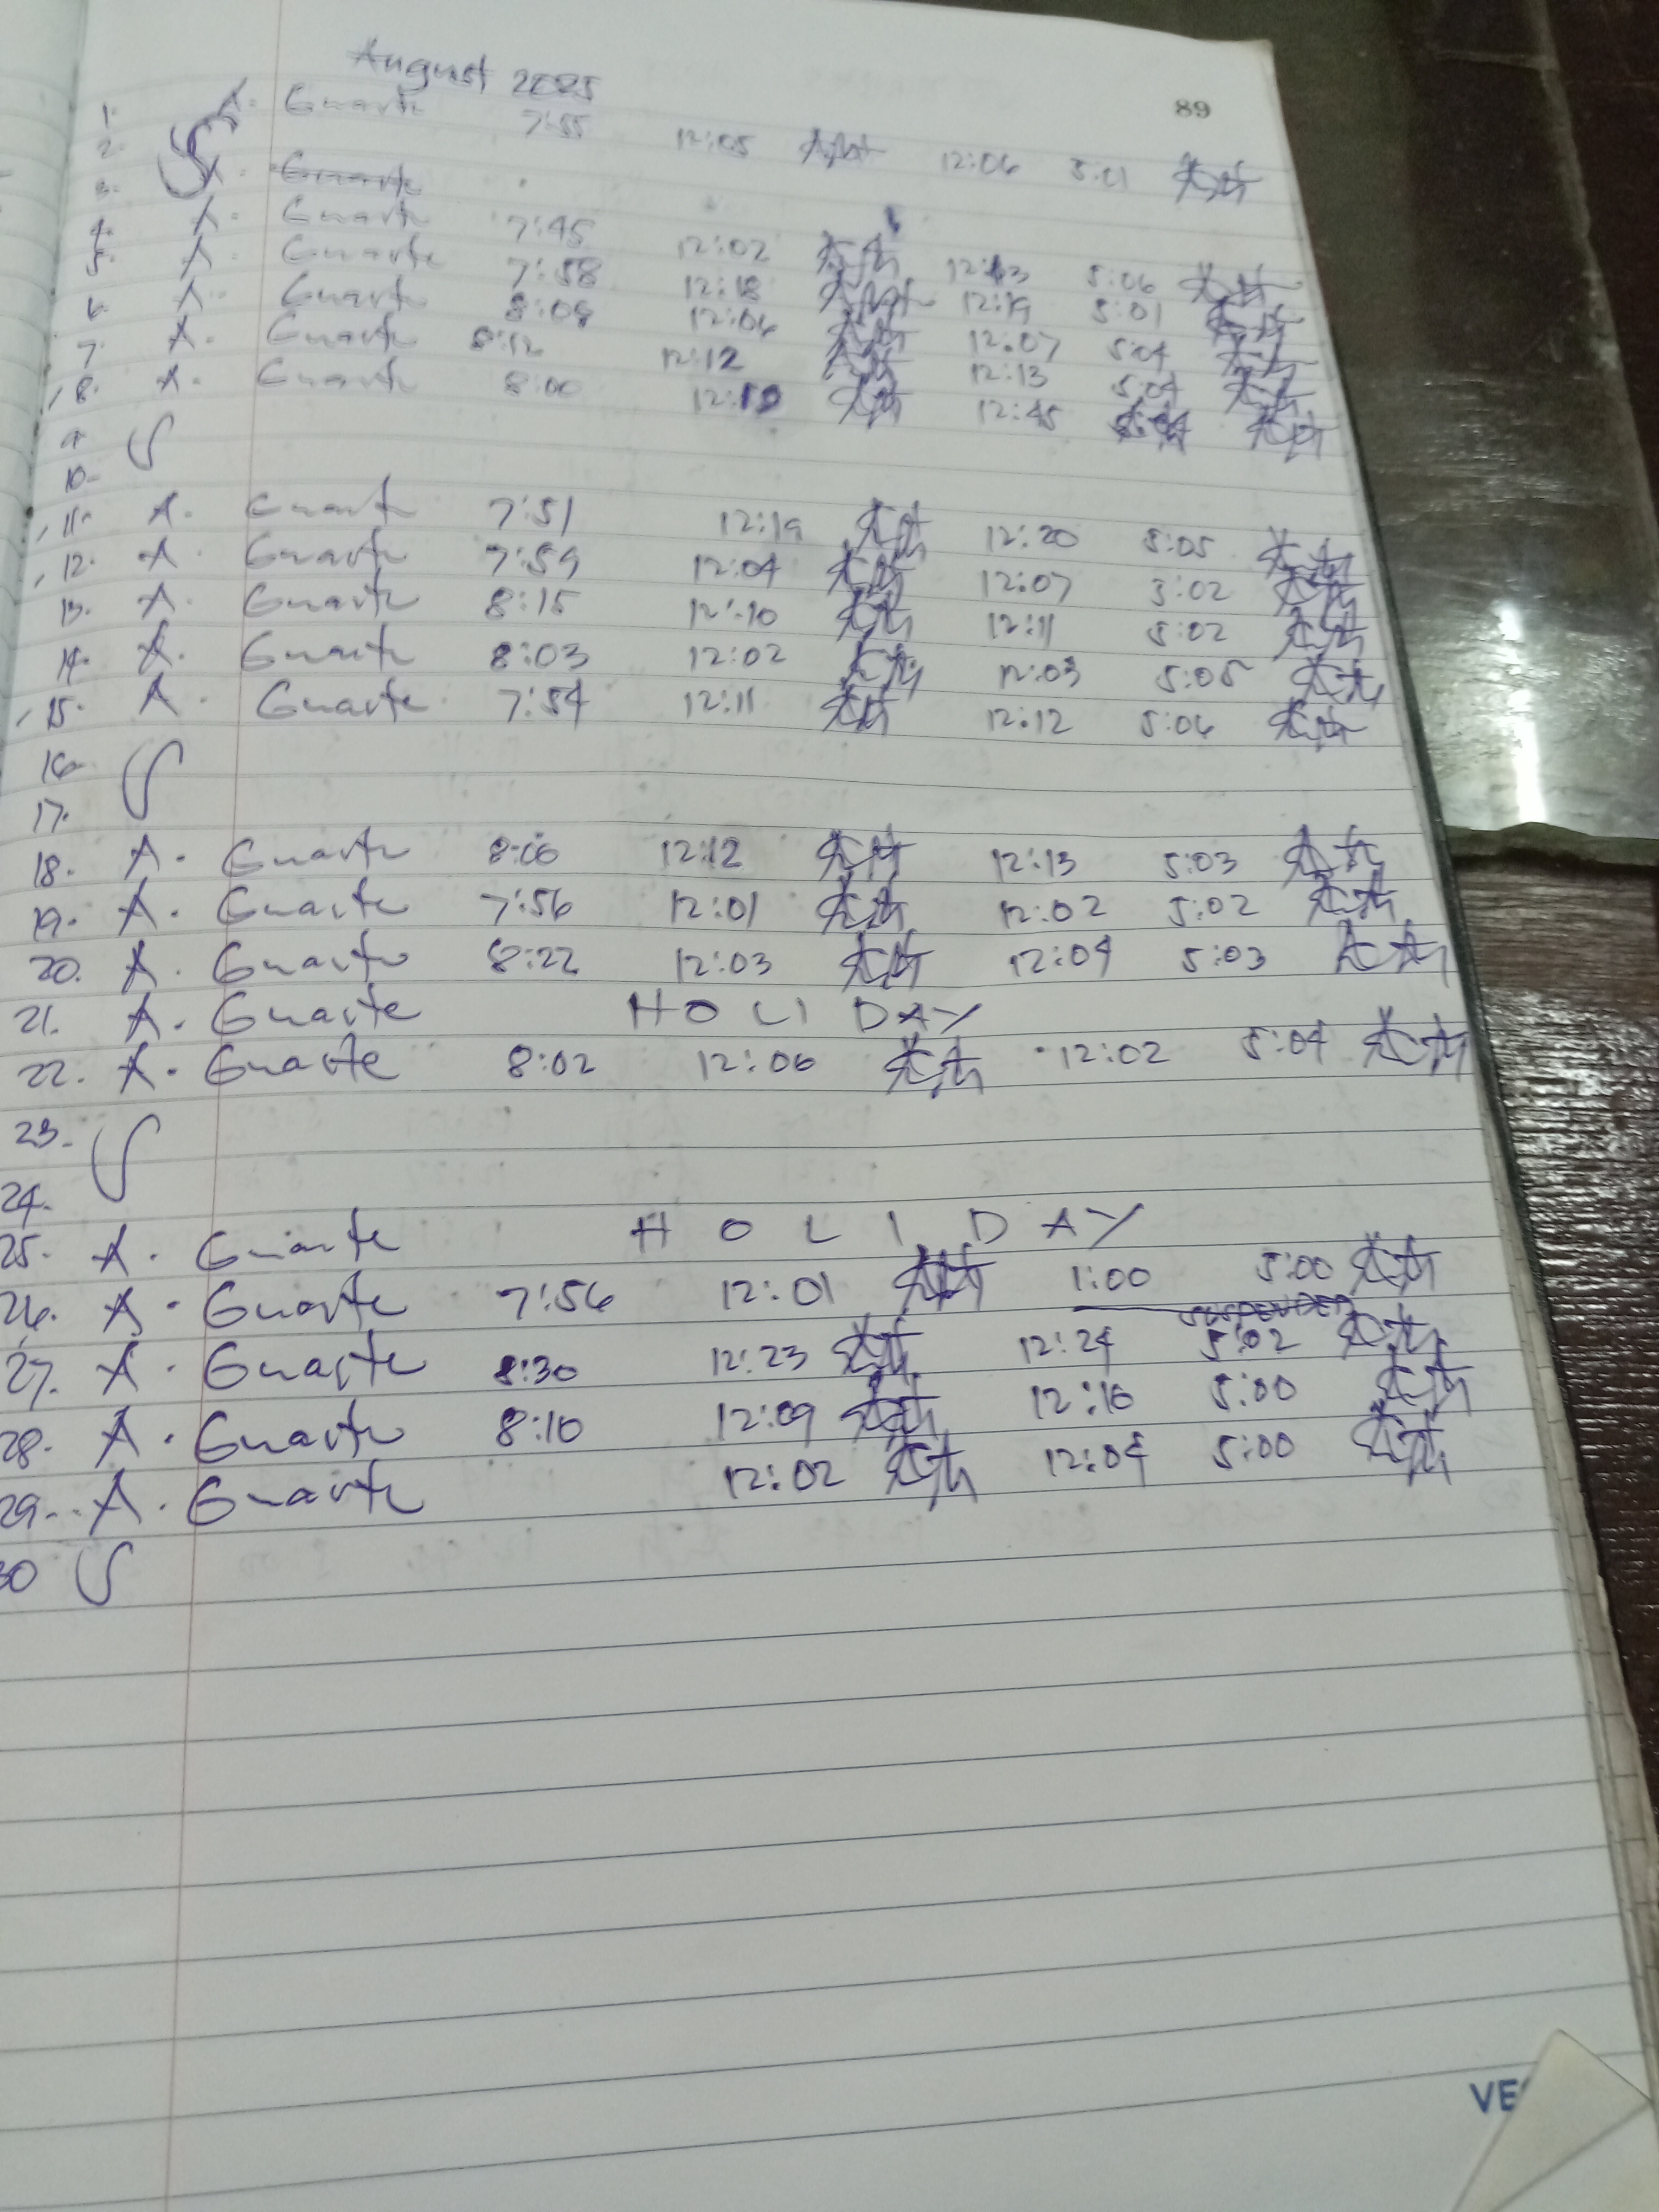 August 2025
89
1. A. Guarte 7:55 12:05 12:06 5:01
2.
3. A. Guarte
4. A. Guarte 7:45 12:02 12:13 5:06
5. A. Guarte 7:58 12:18 12:19 5:01
6. A. Guarte 8:08 12:06 12:07 5:04
7. A. Guarte 8:12 12:12 12:13 5:04
8. A. Guarte 8:00 12:45
9. S
10.
11. A. Guarte 7:51 12:19 12:20 5:05
12. A. Guarte 7:59 12:04 12:07 5:02
13. A. Guarte 8:15 12:10 12:11 5:02
14. A. Guarte 8:03 12:02 12:03 5:05
15. A. Guarte 7:54 12:11 12:12 5:06
16. S
17.
18. A. Guarte 8:06 12:12 12:13 5:03
19. A. Guarte 7:56 12:01 12:02 5:02
20. A. Guarte 8:22 12:03 12:04 5:03
21. A. Guarte HOLIDAY
22. A. Guarte 8:02 12:06 12:02 5:04
23. S
24.
25. A. Guarte HOLIDAY
26. A. Guarte 7:56 12:01 1:00 5:00
SUSPENDED
27. A. Guarte 8:30 12:23 12:24 5:02
28. A. Guarte 8:10 12:09 12:10 5:00
29. A. Guarte 12:02 12:04 5:00
30 S